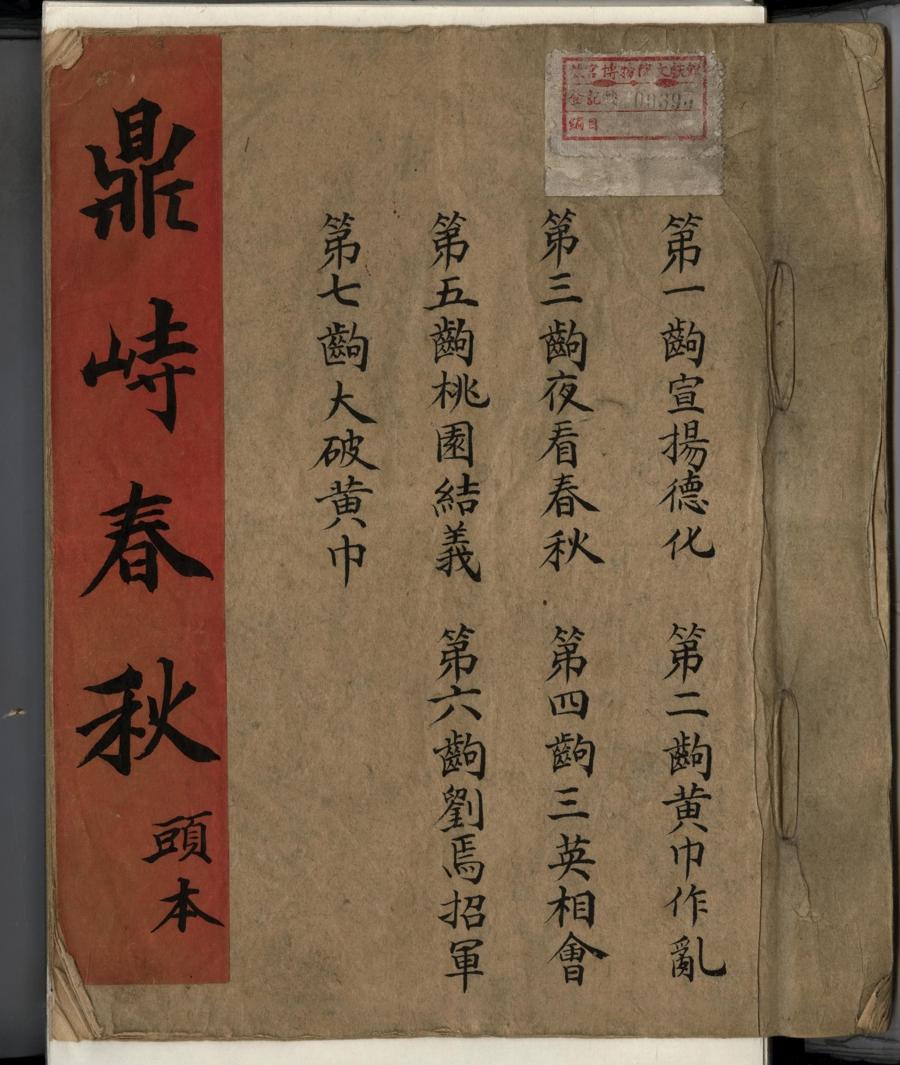 故宮博物院文獻館
登記號 00395
編目
第一齣宣揚德化 第二齣黄巾作亂
第三齣夜看春秋 第四齣三英相會
第五齣桃園結義 第六齣劉焉招軍
第七齣大破黄巾
鼎峙春秋
頭本